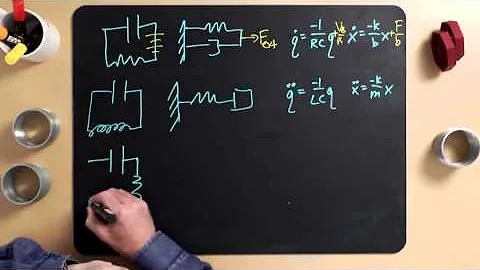 Fext q̇ = -1/RC q + Vb/R ẋ = -k/b x + F/b
q̈ = -1/LC q ẍ = -k/m x